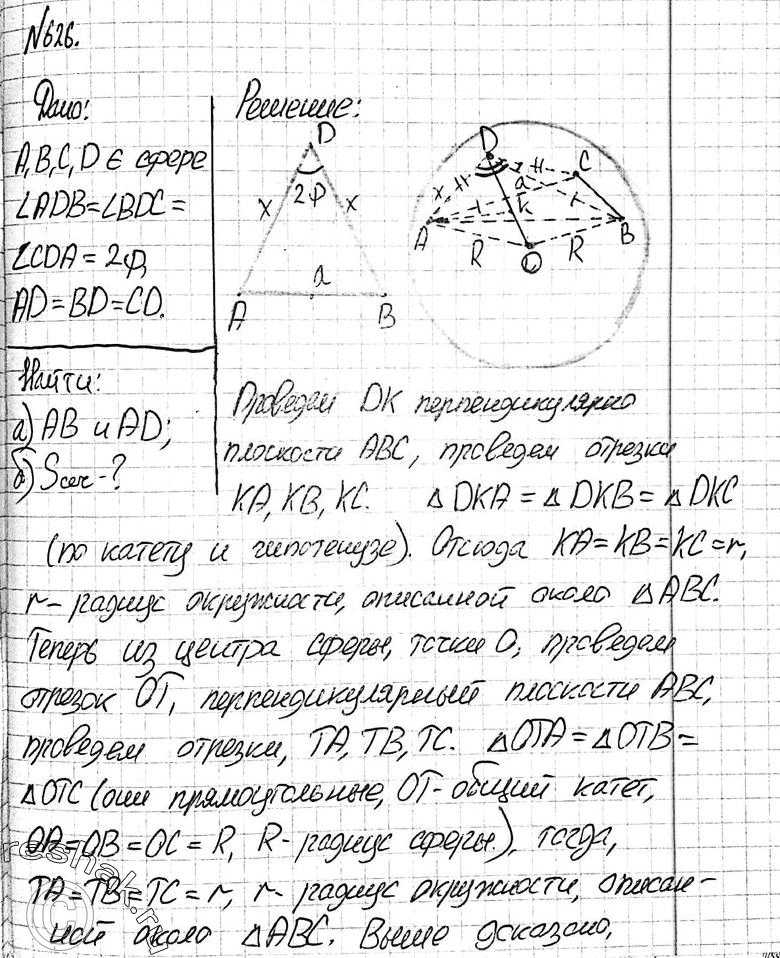 №626.
Дано:
A,B,C,D ∈ сфере
∠ADB=∠BDC=
∠CDA=2φ,
AD=BD=CD.
Найти:
а) AB и AD;
б) Sсеч-?
Решение:
D
2φ
x x
a
A B
D
C
x
a
k
A B
R R
O
Проведем DK перпендикулярно
плоскости ABC, проведем отрезки
KA, KB, KC. △DKA = △DKB = △DKC
(по катету и гипотенузе). Отсюда KA=KB=KC=r,
r- радиус окружности, описанной около △ABC.
Теперь из центра сферы, точки O, проведем
отрезок OT, перпендикулярный плоскости ABC,
проведем отрезки, TA, TB, TC. △OTA = △OTB =
△OTC (они прямоугольные, OT-общий катет,
OA=OB=OC=R, R-радиус сферы), тогда,
TA=TB=TC=r, r- радиус окружности, описан-
ной около △ABC. Выше доказано,
reshak.ru